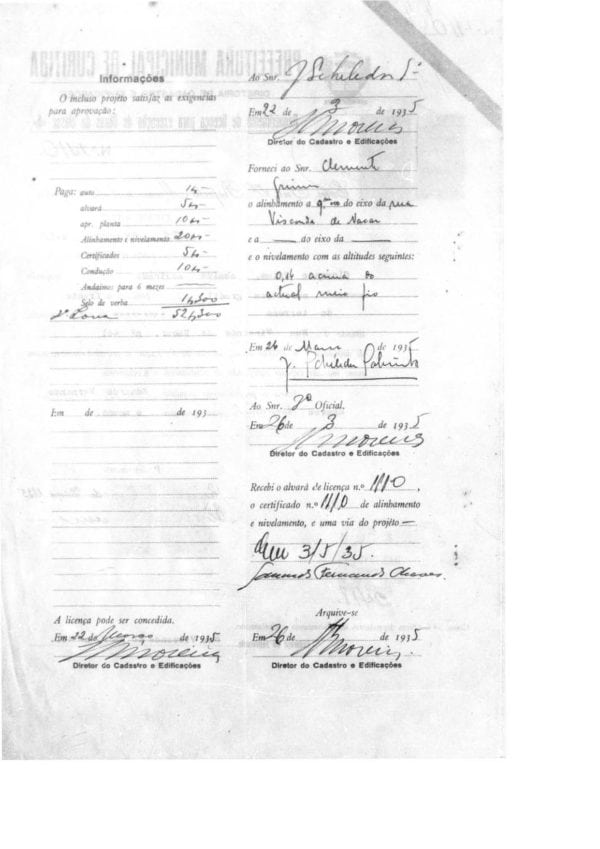 Informações
O incluso projeto satisfaz as exigencias
para aprovação:
Paga: auto 1$-
alvará 5$-
apr. planta 10$-
Alinhamento e nivelamento 20$-
Certificados 5$-
Condução 10$-
Andaimes para 6 mezes
Selo de verba 1$300
52$300
Em de de 193
A licença pode ser concedida.
Em 22 de Março de 1935
Moreira
Diretor do Cadastro e Edificações
Ao Snr. J
Em 22 de 3 de 1935
Moreira
Diretor do Cadastro e Edificações
Forneci ao Snr. Clemente
o alinhamento a 9 do eixo da rua
Visconde de Nacar
e a do eixo da
e o nivelamento com as altitudes seguintes:
0,14 acima do
actual meio fio
Em 26 de Março de 1935
J.
Ao Snr. 2º Oficial.
Em 26 de 3 de 1935
Moreira
Diretor do Cadastro e Edificações
Recebi o alvará de licença n.º 1110,
o certificado n.º 1110 de alinhamento
e nivelamento, e uma via do projéto
Em 3/5/35.
Fernando Chaves.
Arquive-se
Em 26 de de 1935
Moreira.
Diretor do Cadastro e Edificações